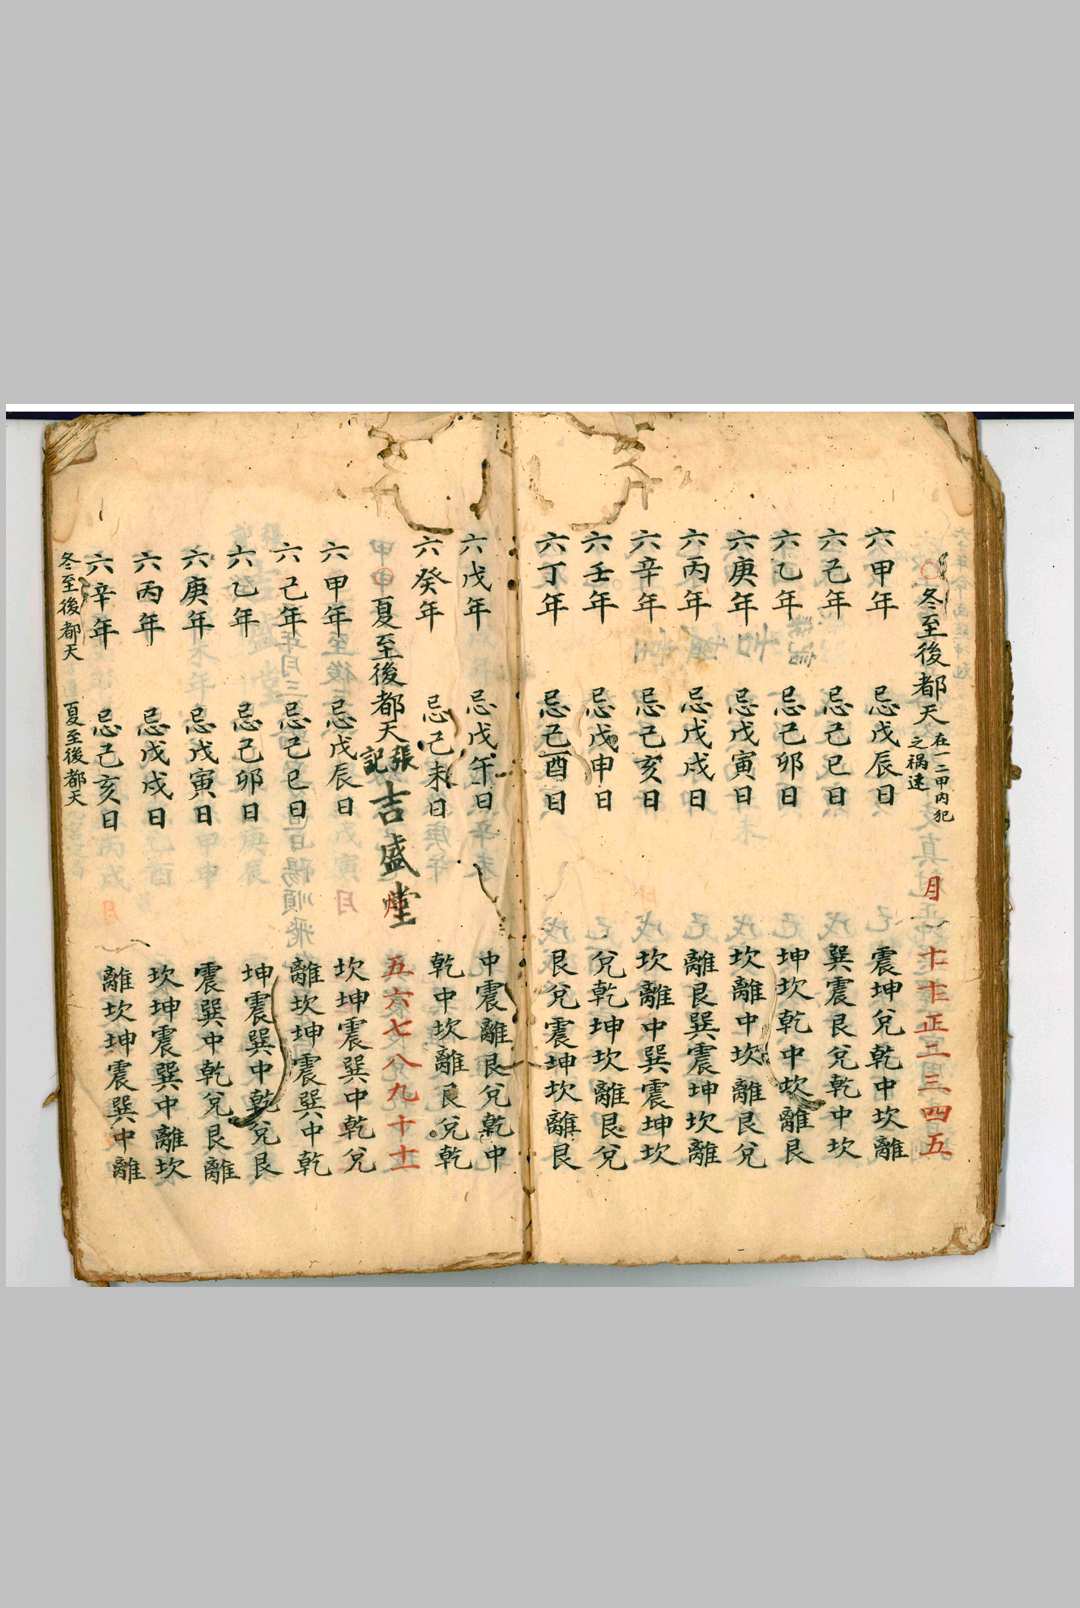 冬至後都天 在一二甲内犯之禍速 月 十 十二 正 二 三 四 五
六甲年 忌戊辰日 震坤兌乾中坎離
六己年 忌己巳日 巽震艮兌乾中坎
六乙年 忌己卯日 坤坎乾中坎離艮
六庚年 忌戊寅日 坎離中坎離艮兌
六丙年 忌戊戌日 離艮巽震坤坎離
六辛年 忌己亥日 坎離中巽震坤坎
六壬年 忌戊申日 兌乾坤坎離艮兌
六丁年 忌己酉日 艮兌震坤坎離艮
六戊年 忌戊午日 中震離艮兌乾中
六癸年 忌己未日 乾中坎離艮兌乾
夏至後都天 張記吉盛堂 五六七八九十十二
六甲年 忌戊辰日 坎坤震巽中乾兌
六己年 忌己巳日 離坎坤震巽中乾
六乙年 忌己卯日 坤震巽中乾兌艮
六庚年 忌戊寅日 震巽中乾兌艮離
六丙年 忌戊戌日 坎坤震巽中離坎
六辛年 忌己亥日 離坎坤震巽中離
冬至後都天 夏至後都天